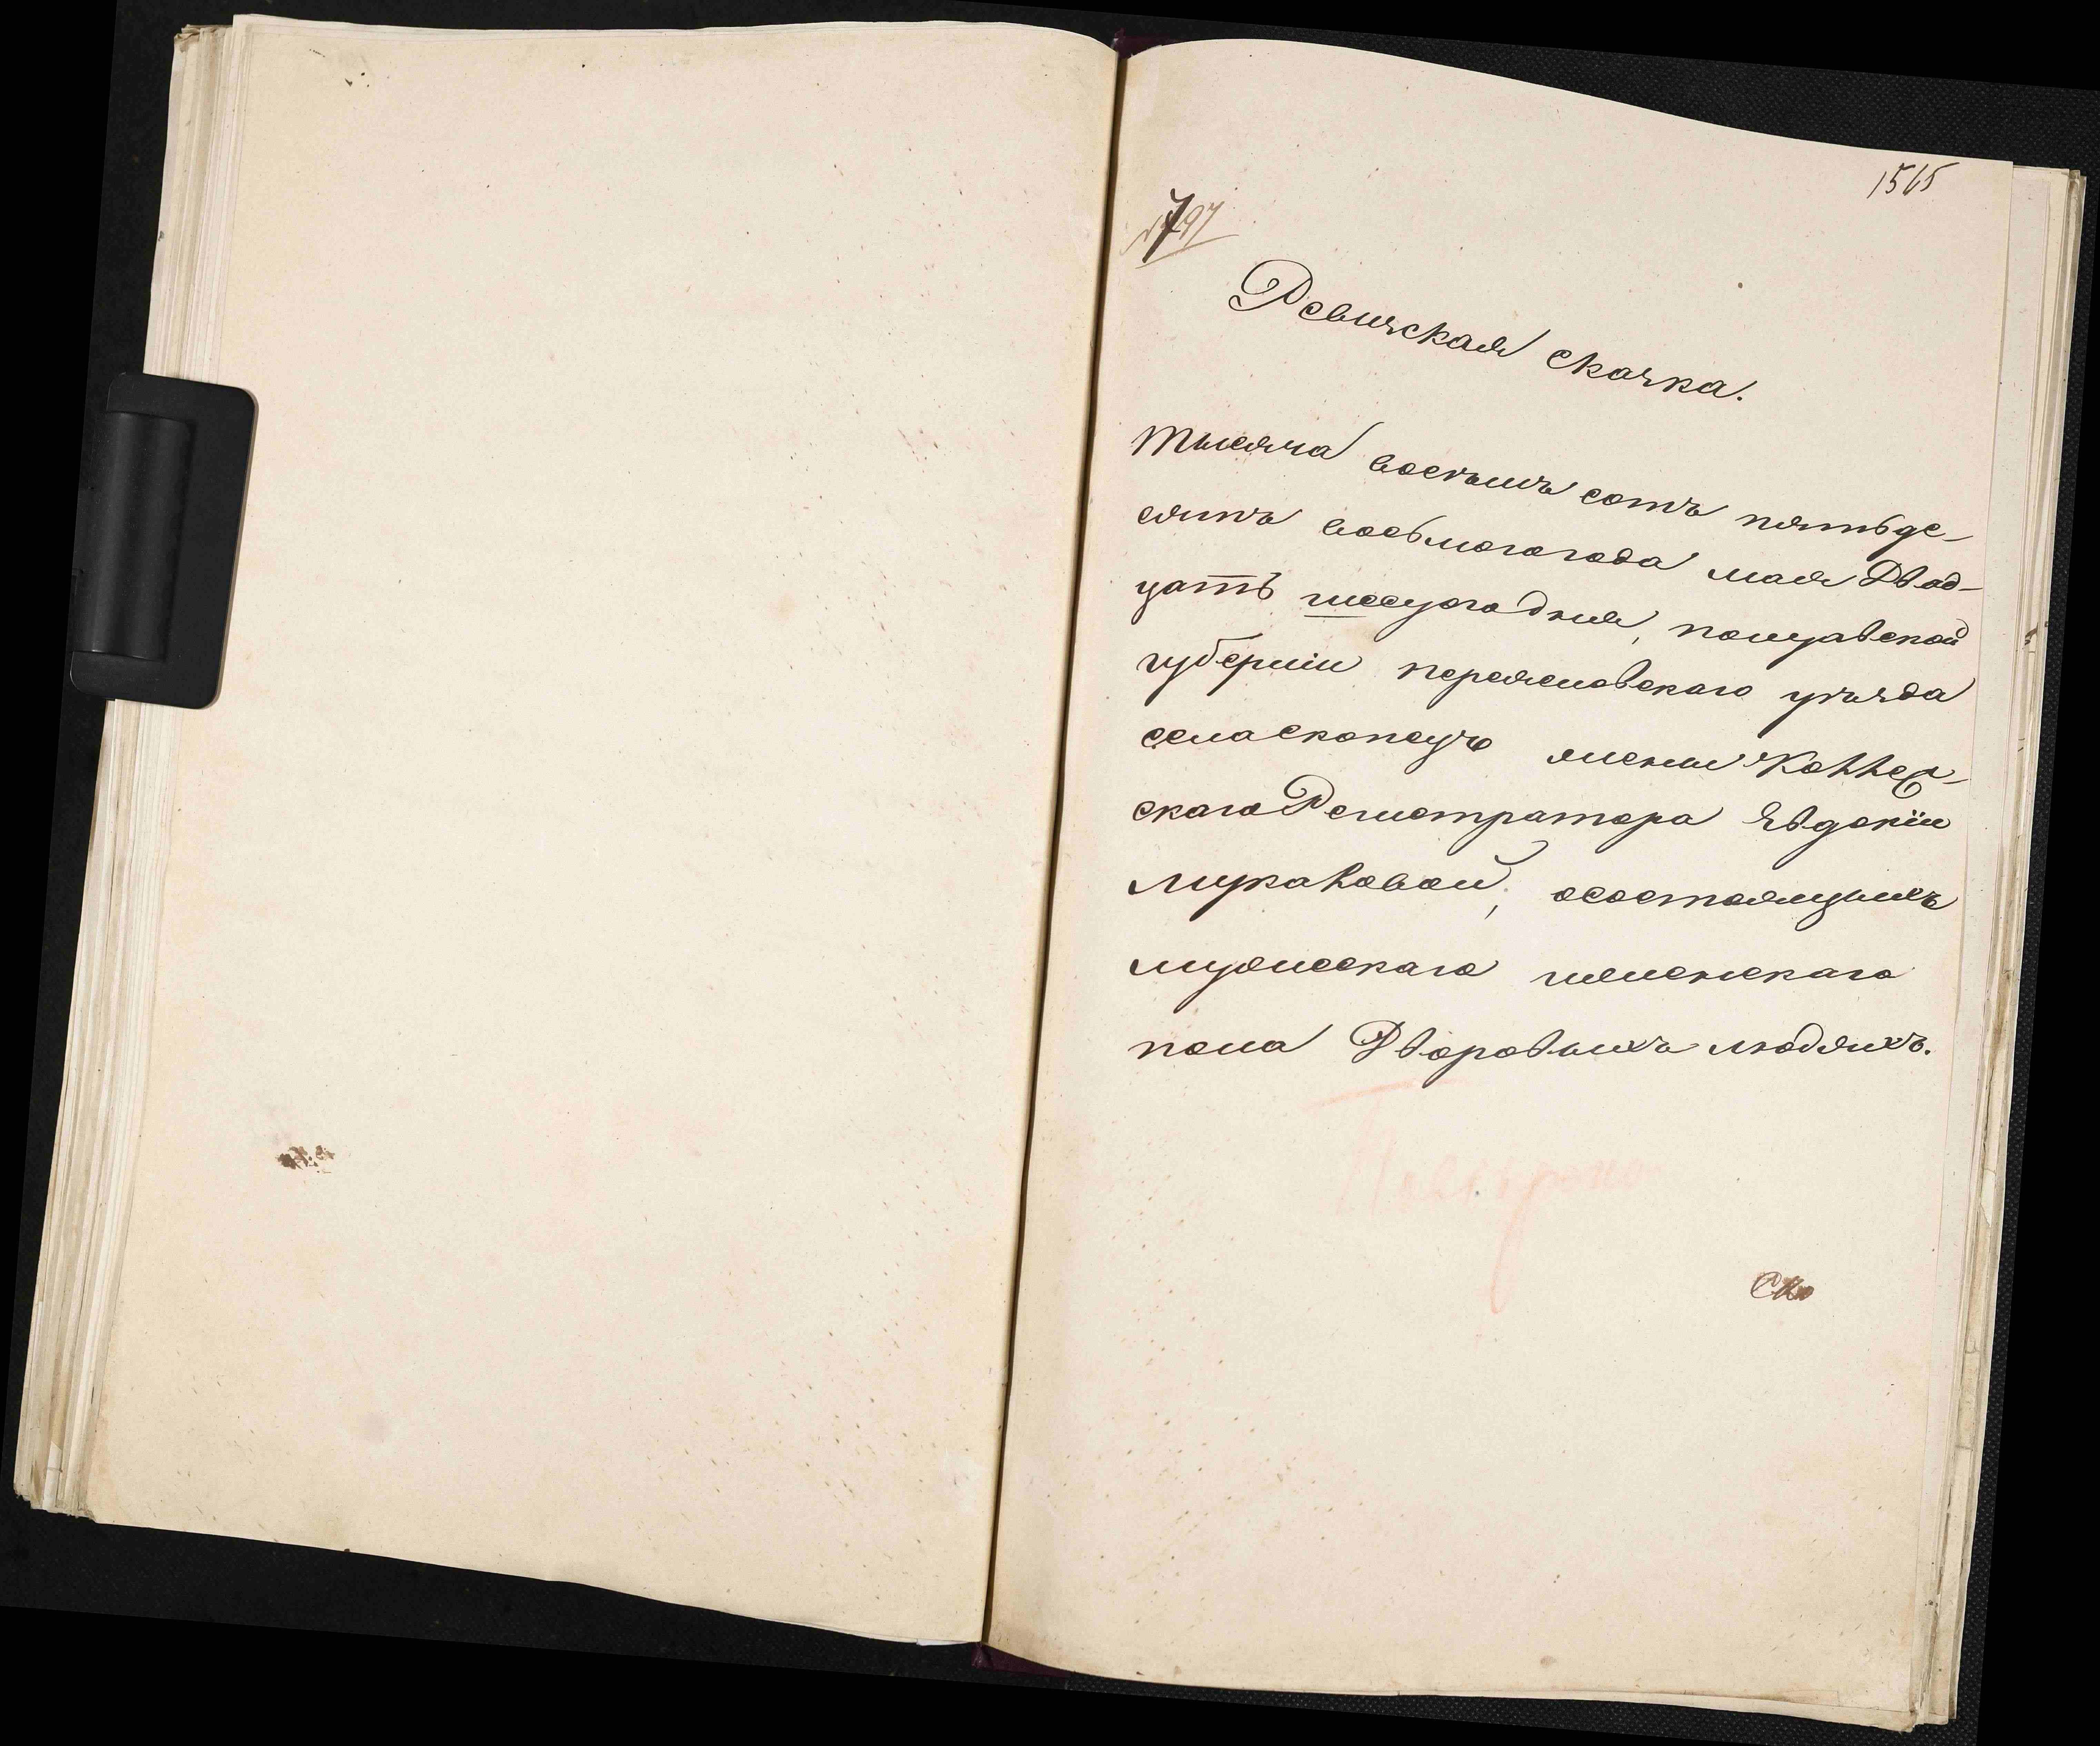 1565
797
Ревизская сказка.
Тысяча восѣмъ сотъ пятьде-
сятъ восьмогогода мая Двад-
цать шестогодня, полтавской
губерніи переяславскаго уѣзда
села скопецъ имени Коллеж-
скаго Регистратора Явдокіи
Лукаковой, осостоящихъ
мужескаго женскаго
пола Дворовыхъ людяхъ.
Повѣрено